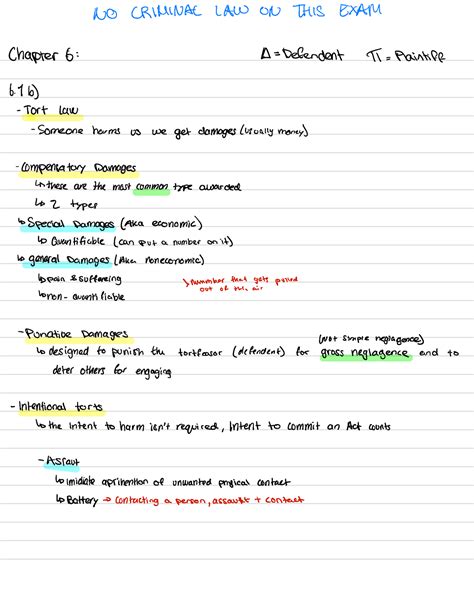 NO CRIMINAL LAW ON THIS EXAM
Chapter 6: Δ = Defendent π = Plaintiff
6.1 b)
- Tort law
- Someone harms us we get damages (usually money)
- Compensatory Damages
↳ these are the most common type awarded
↳ 2 types
↳ Special Damages (Aka economic)
↳ Quantifiable (can put a number on it)
↳ general Damages (Aka noneconomic)
↳ pain & suffering
↳ non-quantifiable
↳ number that gets pulled
out of the air
- Punative Damages (Not simple neglagence)
↳ designed to punish the tortfeasor (defendent) for gross neglagence and to
deter others for engaging
- Intentional torts
↳ the intent to harm isn't required, Intent to commit an Act counts
- Assault
↳ imidiate aprihention of unwanted physical contact
↳ Battery → contacting a person, assault + contact